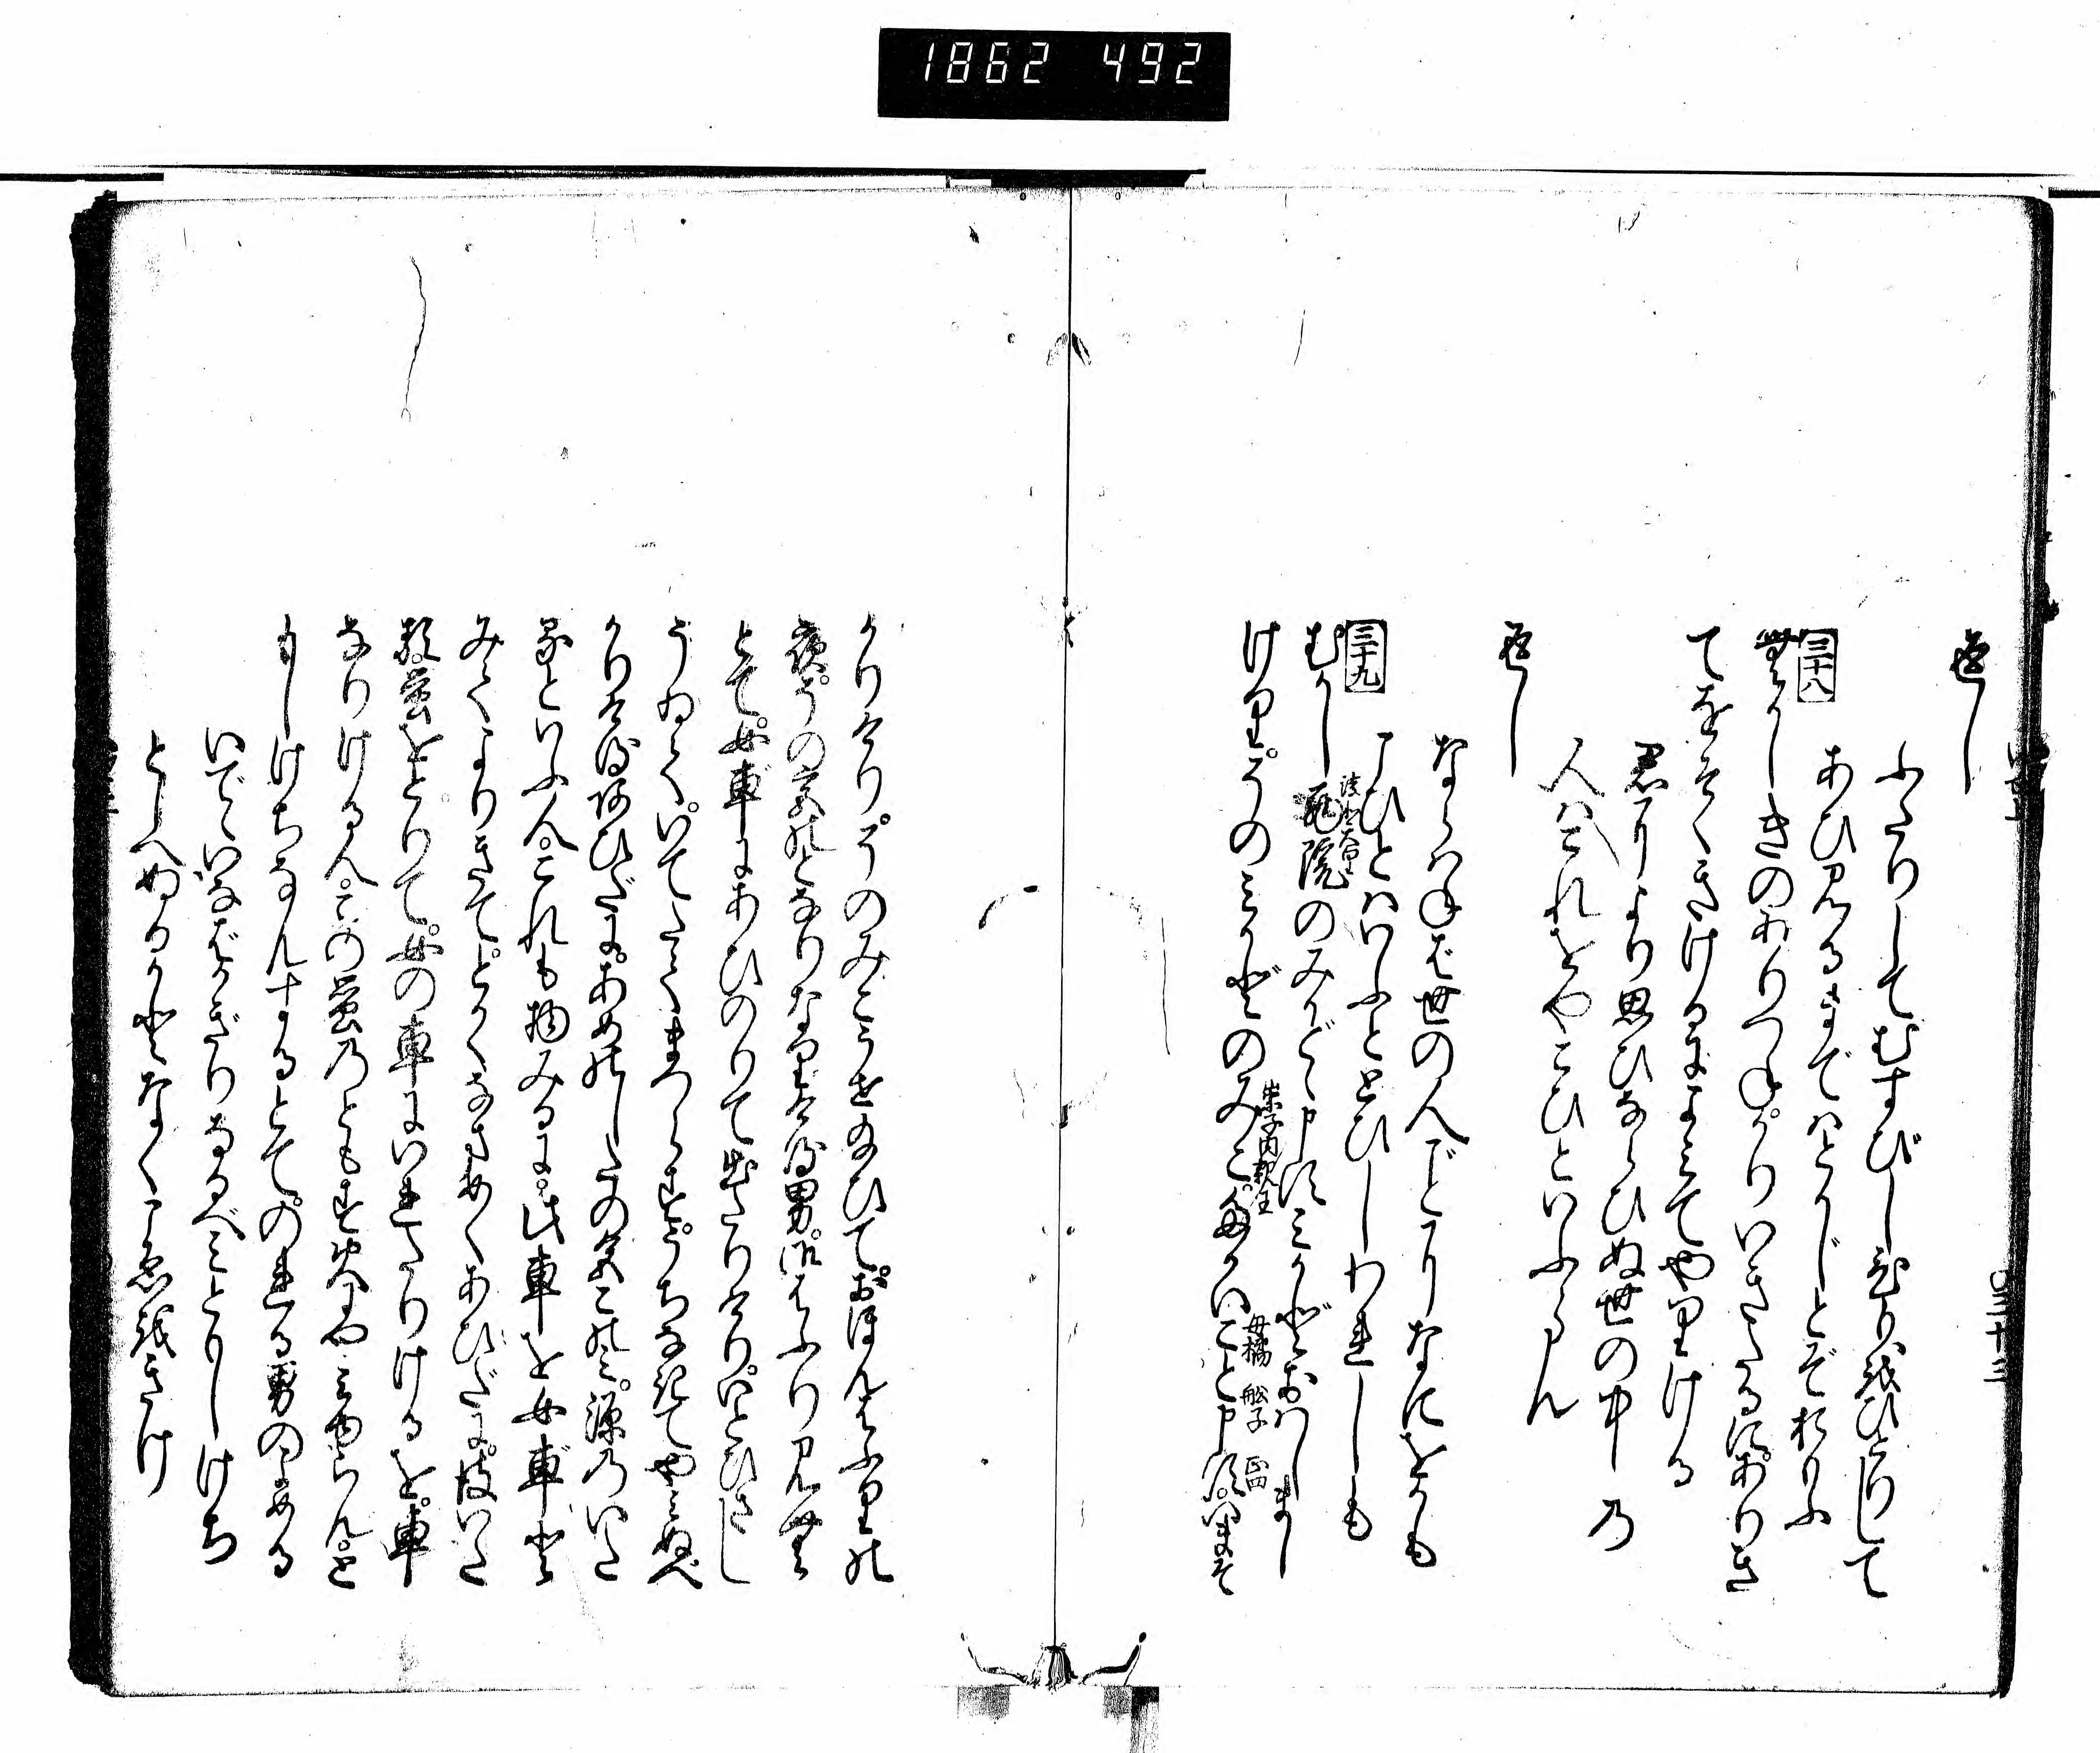 1862 492
返し
ふたりしてむすびしひもをひとりして
あひ見るまではとかじとぞおもふ
三十八
むかしきのありつねがりいきたるにありき
てをそくきけるによみてやりける
君により思ひならひぬ世の中の
人はこれをやこひといふらん
返し
ならはねば世の人ごとになにをかも
こひとはいふととひしわれしも
三十九
むかし西院のみかどと申すみかどおはしまし
淳和天皇
けり。そのみかどのみこ。たかいこと申す。いまそ
崇子内親王
母橘 船子 正四
かりけり。そのみこうせ給ひて。おほんはふりの
夜。その宮のとなりなりける男。御はふり見む
とて。女車にあひのりて出たりけり。いとひさし
うゐていてたてまつらず。うちなきてやみぬべ
かりけるあひだに。あめのしたの色ごのみ。源のいた
るといふ人。これも物みるに。此車を女車と
みて。よりきて。とかくなまめくあひだに。彼いた
る。蛍をとりて。女の車にいれたりけるを。車
なりける人。この蛍のともす火にや見ゆらん。と
もしけちなんするとて。のれる男のよめる
いでていなばかぎりなるべみともしけち
としへぬるかとなくこゑをきけ